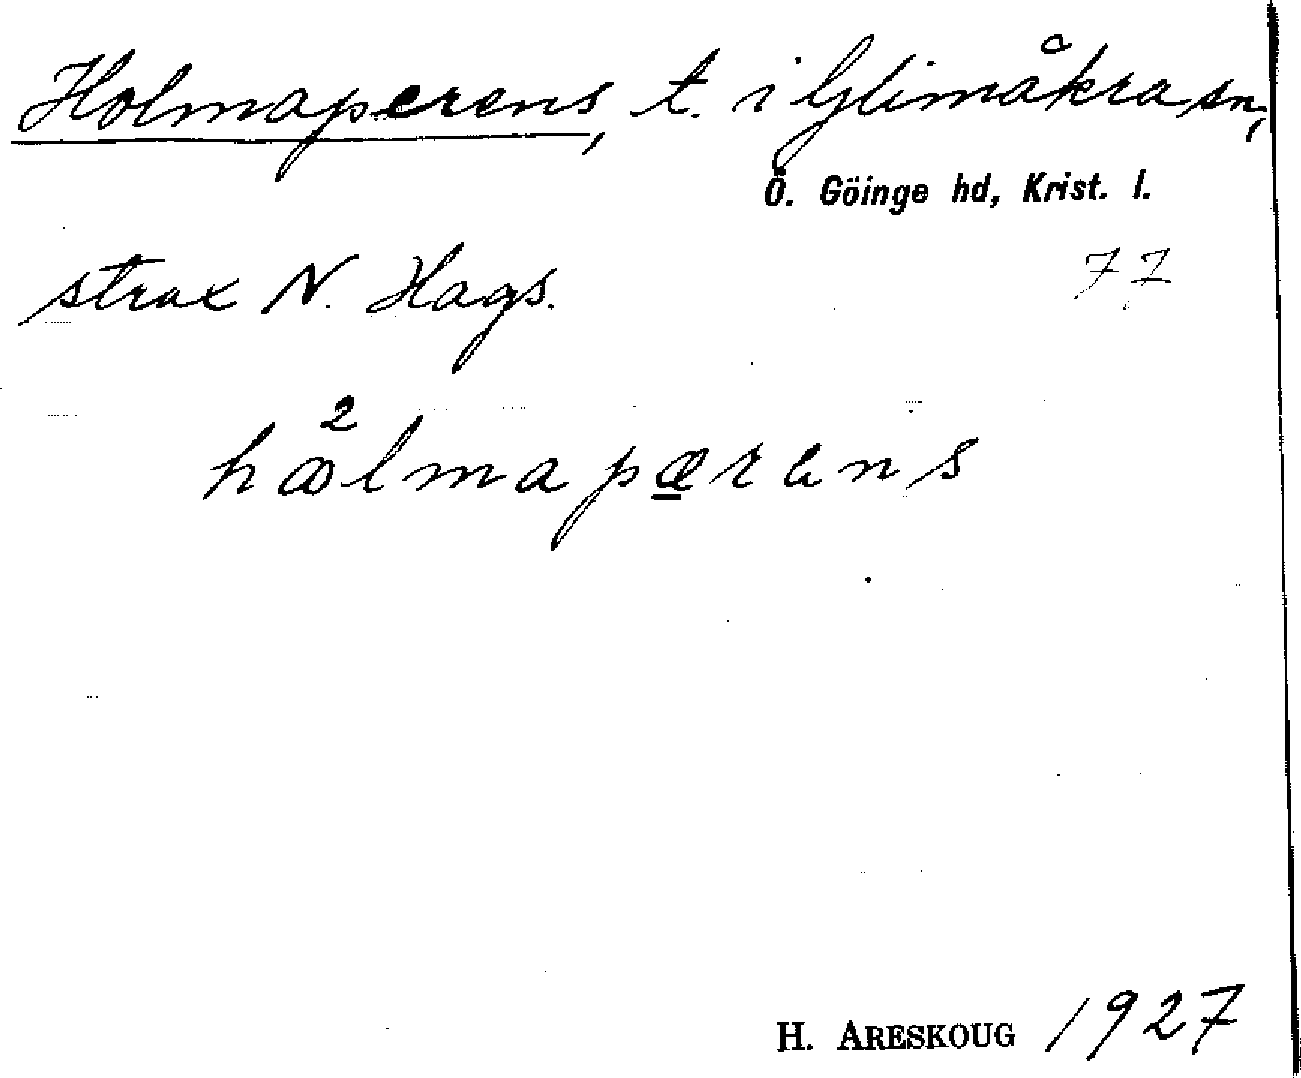 Holmaperens, t. i Glimåkra sn,
Ö. Göinge hd, Krist. l.
strax N. Hags. 77
hꝏ²lmapærens
H. ARESKOUG 1927